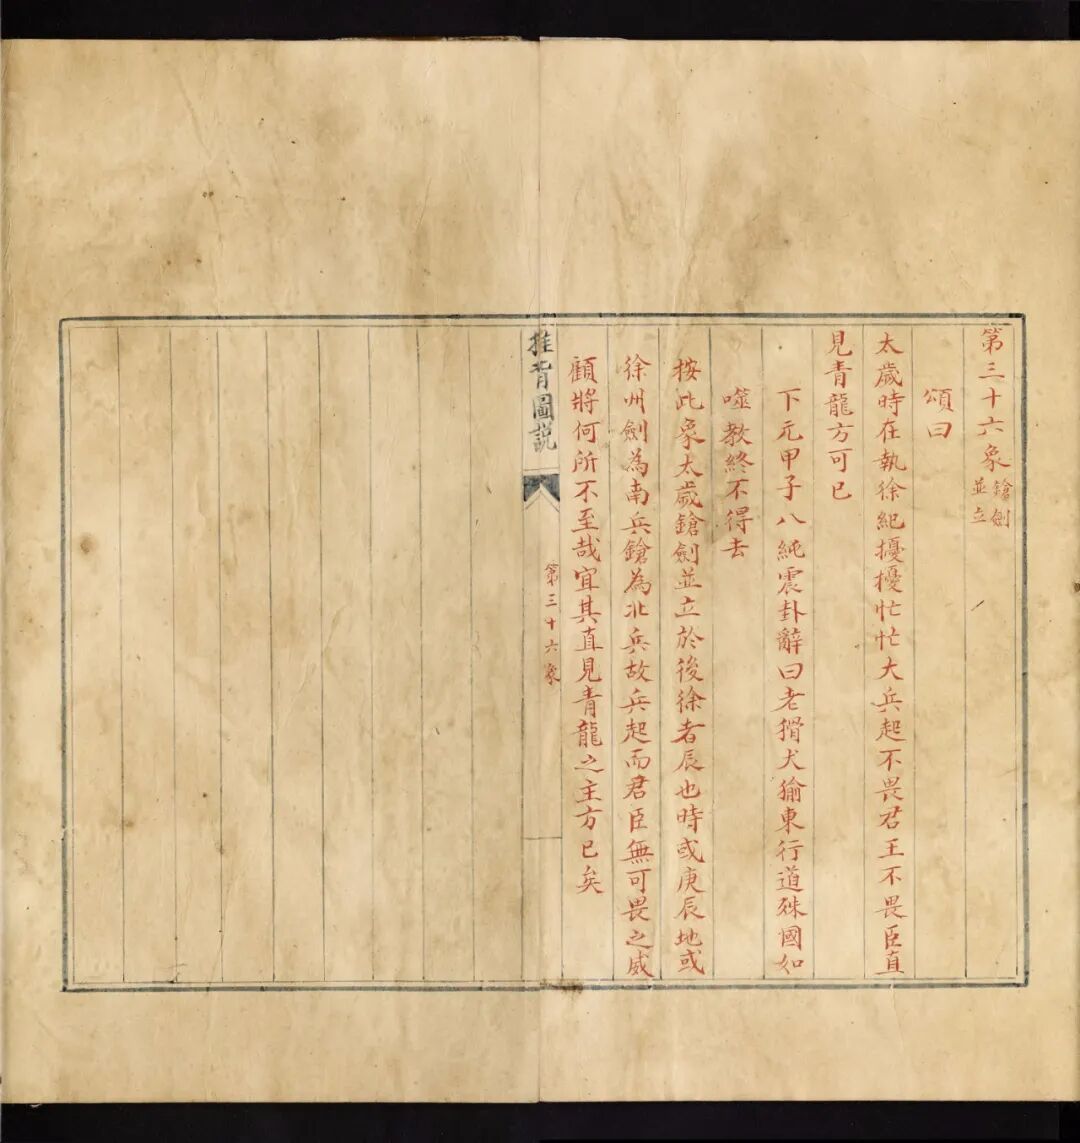 第三十六象鎗劍並立
頌曰
太歲時在執徐紀擾擾忙忙大兵起不畏君王不畏臣直
見青龍方可已
下元甲子八純震卦辭曰老猾犬㺄東行道殊國如
噬教終不得去
按此象太歲鎗劍並立於後徐者辰也時或庚辰地或
徐州劍為南兵鎗為北兵故兵起而君臣無可畏之威
顧將何所不至哉宜其直見青龍之主方已矣
推背圖説
第三十六象